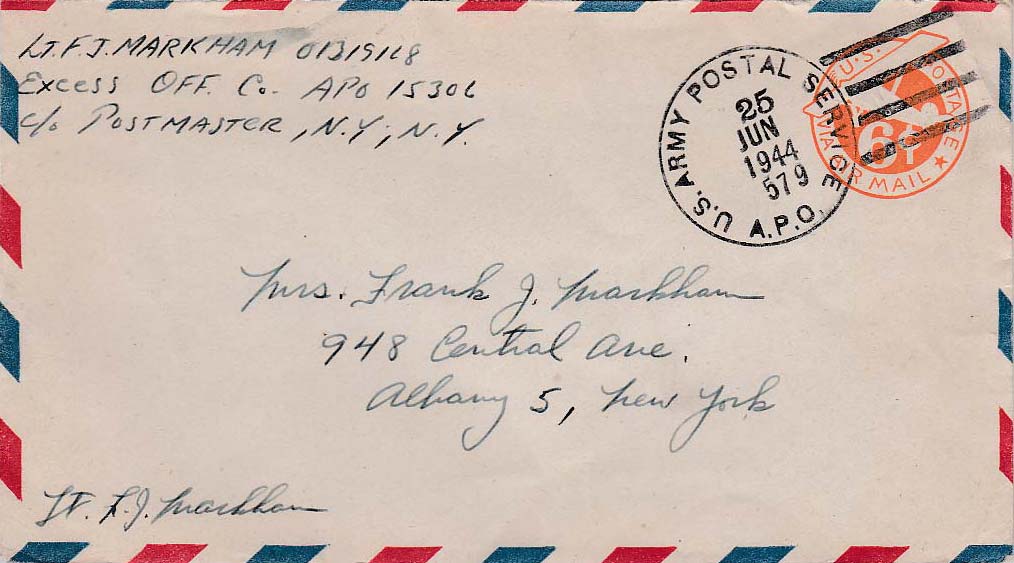 LT. F. J. MARKHAM 01319118
Excess OFF. Co. APO 15306
c/o POSTMASTER, N.Y., N.Y.
U.S. ARMY POSTAL SERVICE
25
JUN
1944
579
A.P.O.
U.S. POSTAGE
6¢
VIA AIR MAIL
Mrs. Frank J. Markham
948 Central Ave.
Albany 5, New York
Lt. F. J. Markham